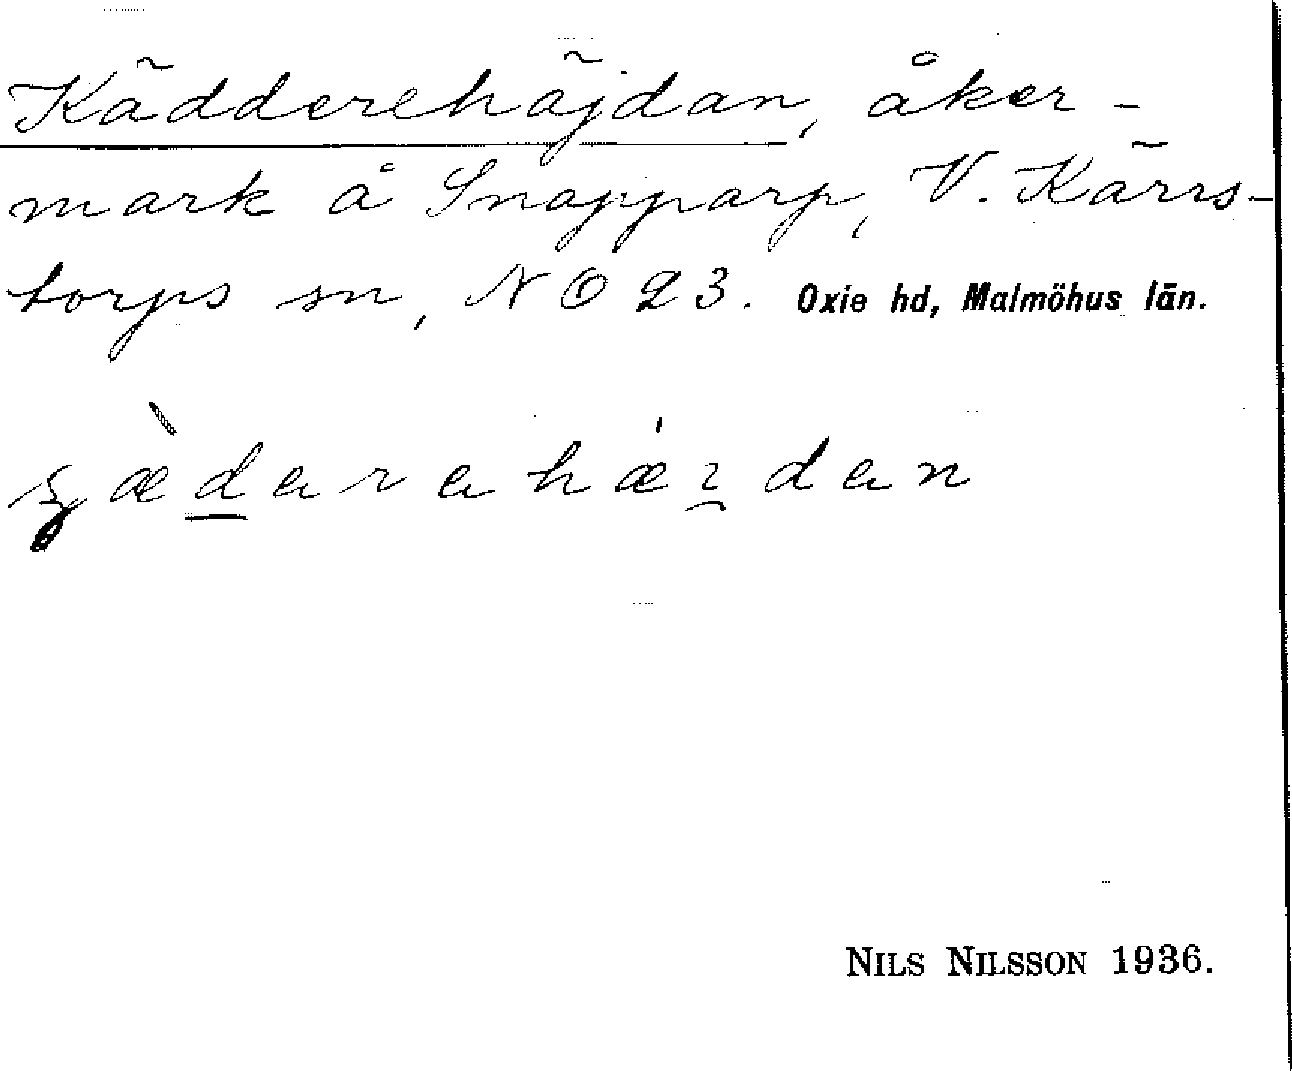 Kädderehäjdan, åker-
mark å Snapparp, V. Kärrs-
torps sn, NO 23. Oxie hd, Malmöhus län.
NILS NILSSON 1936.